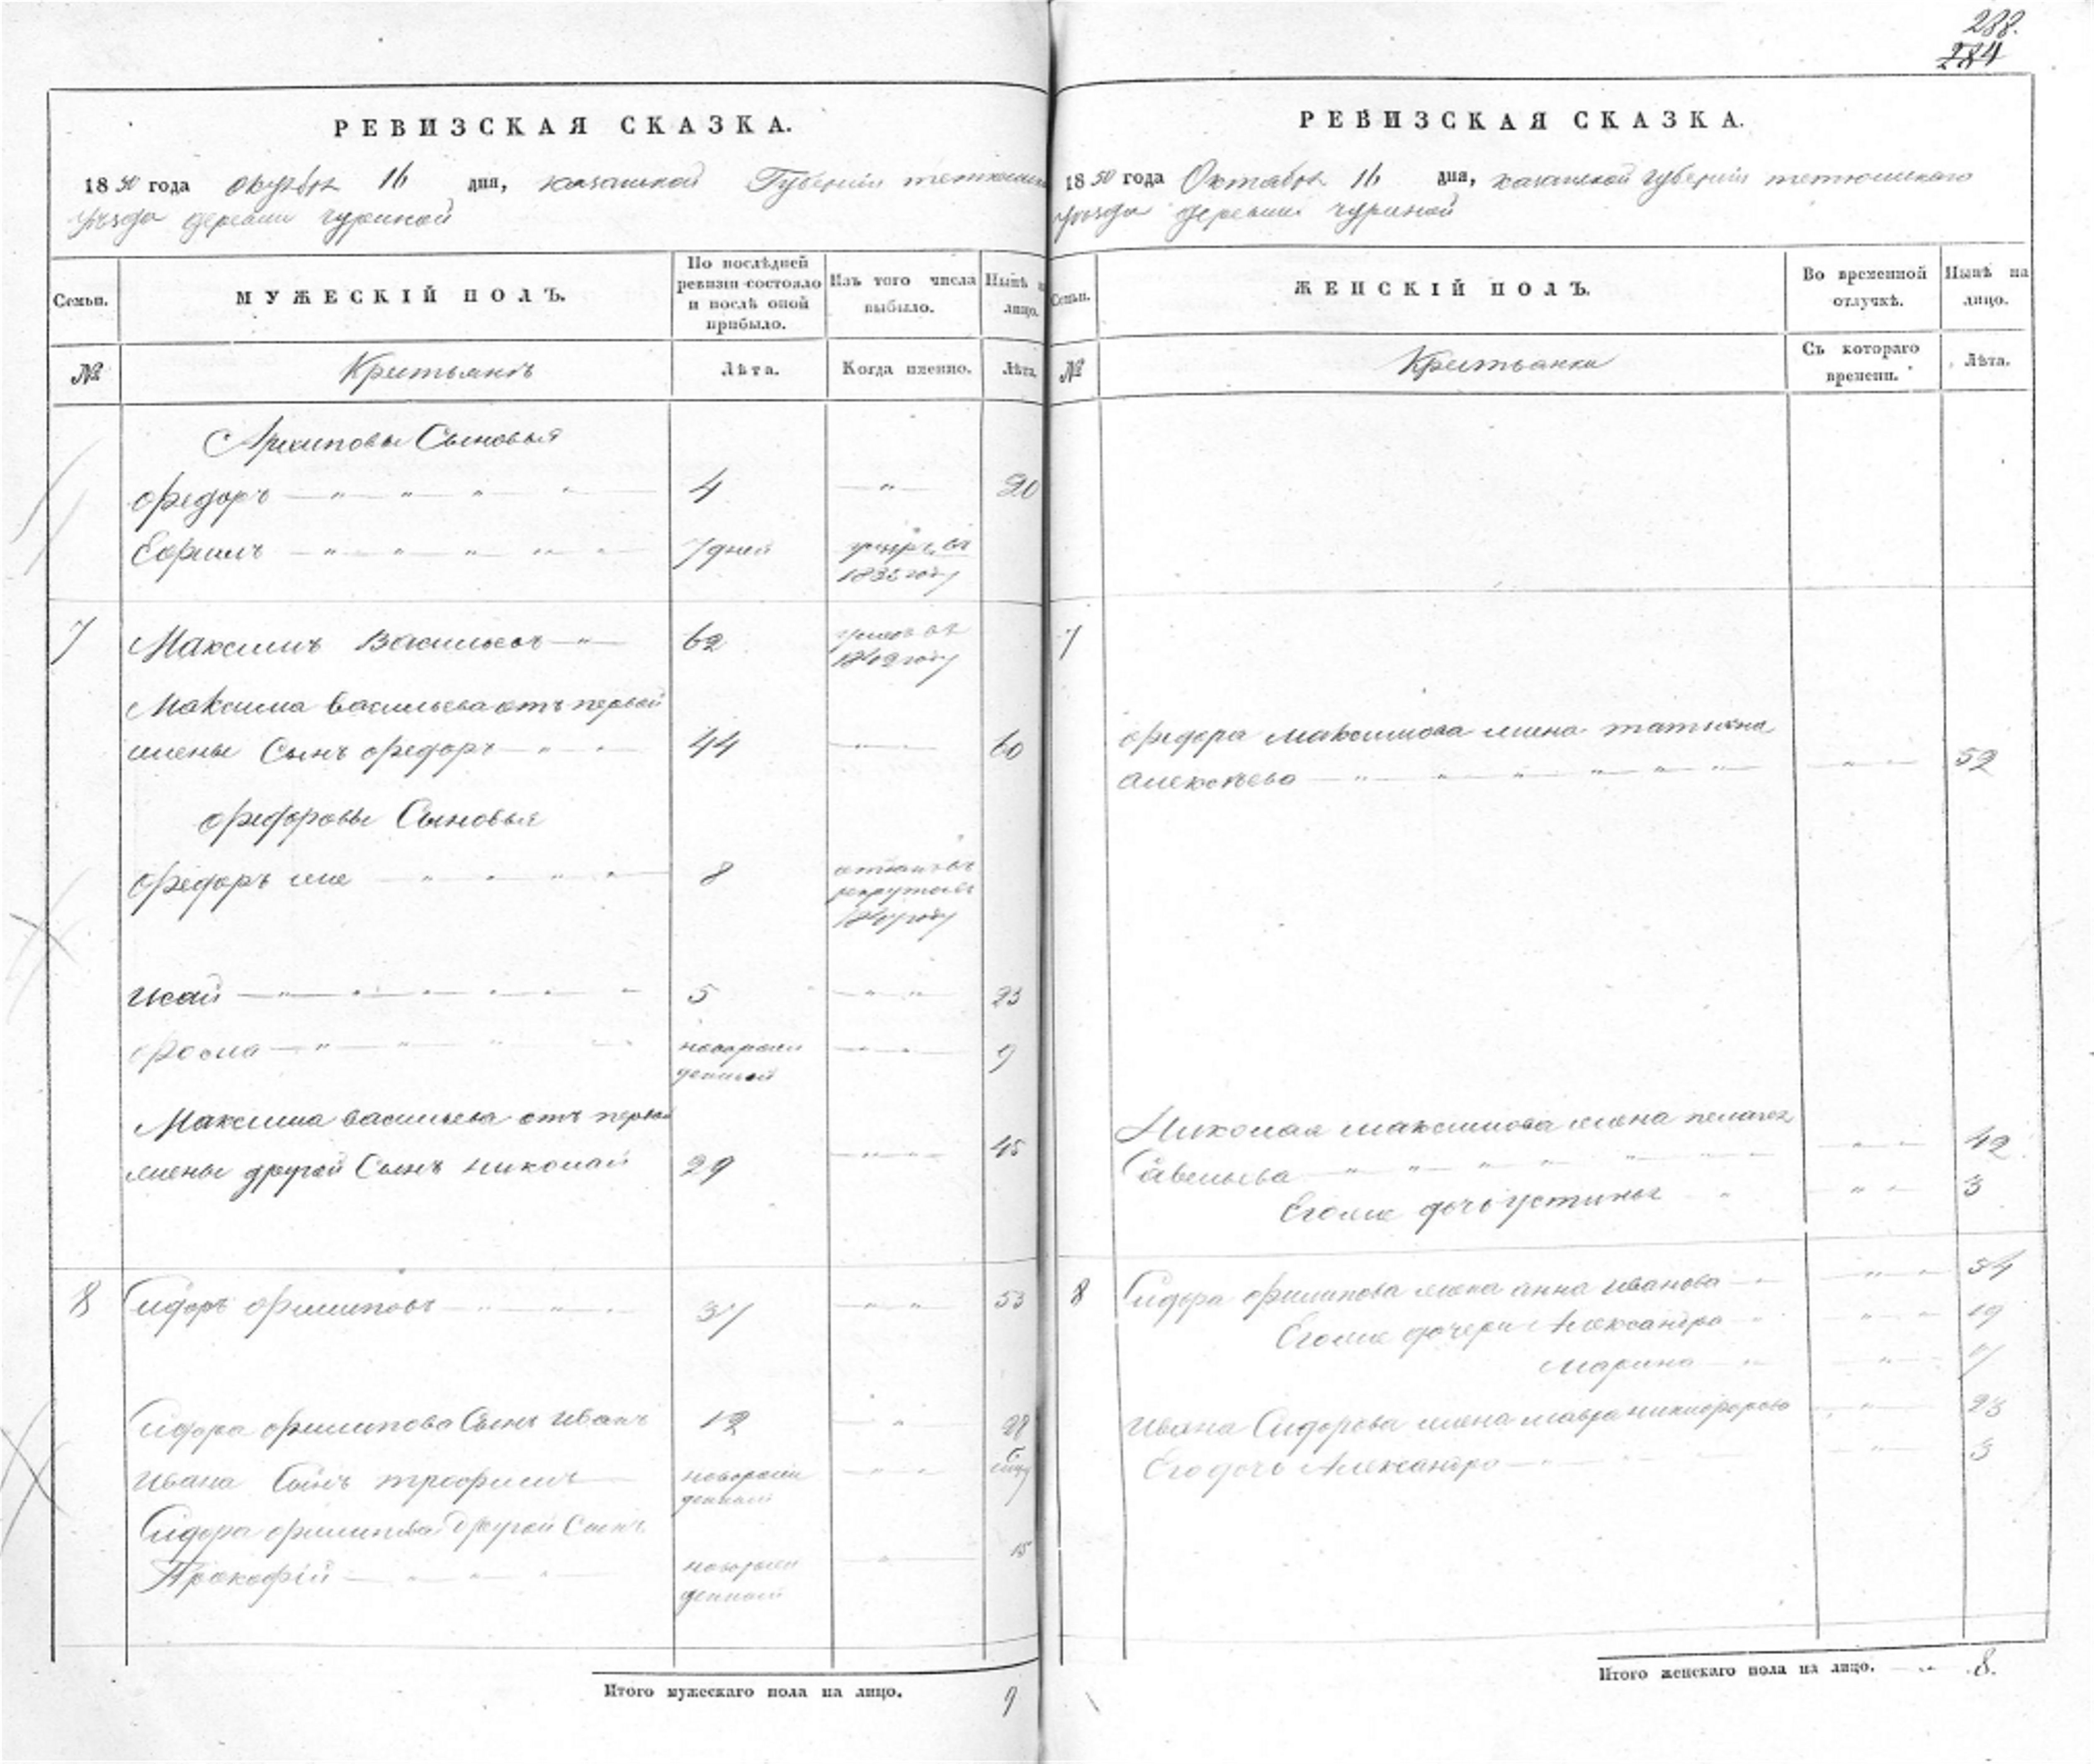 288.
284
РЕВИЗСКАЯ СКАЗКА.
1850 года октября 16 дня, казанской Губернии тетюшскаго
уѣзда деревни чуриной
Семьи.
МУЖЕСКІЙ ПОЛЪ.
По послѣдней ревизіи состояло и послѣ оной прибыло.
Изъ того числа выбыло.
Нынѣ на лицо.
№
Крестьянъ
Лѣта.
Когда именно.
Лѣта.
Архиповы Сыновья
Федоръ 4 20
Ефимъ 7 дней
7 Максимъ Васильевъ 62
Максима васильева отъ первой
жены Сынъ Федоръ 44 60
Федоровы Сыновья
Федоръ же 8
исай 5 23
Фома новорожденной 9
Максима васильева отъ первой
жены другой Сынъ николай 29 45
8 Сидоръ Филиповъ 37 53
Сидора Филипова Сынъ Иванъ 12 28
Ивана Сынъ трофимъ новорожденной
Сидора Филипова другой Сынъ
Прокофій новорожденной 15
Итого мужескаго пола на лицо. 9
РЕВИЗСКАЯ СКАЗКА.
1850 года Октября 16 дня, казанской губерніи тетюшскаго
уѣзда деревни чуриной
Семьи.
ЖЕНСКІЙ ПОЛЪ.
Во временной отлучкѣ.
Нынѣ на лицо.
№
Крестьянки
Съ котораго времени.
Лѣта.
7
Федора максимова жена татьяна
алексѣева 52
Николая максимова жена пелагея
Савельева 42
Егоже дочь устинья 3
8 Сидора Филипова жена анна иванова 54
Егоже дочери Александра 19
марина 7
ивана Сидорова жена мавра никифорова 23
Его дочь Александра 3
Итого женскаго пола на лицо. 8.